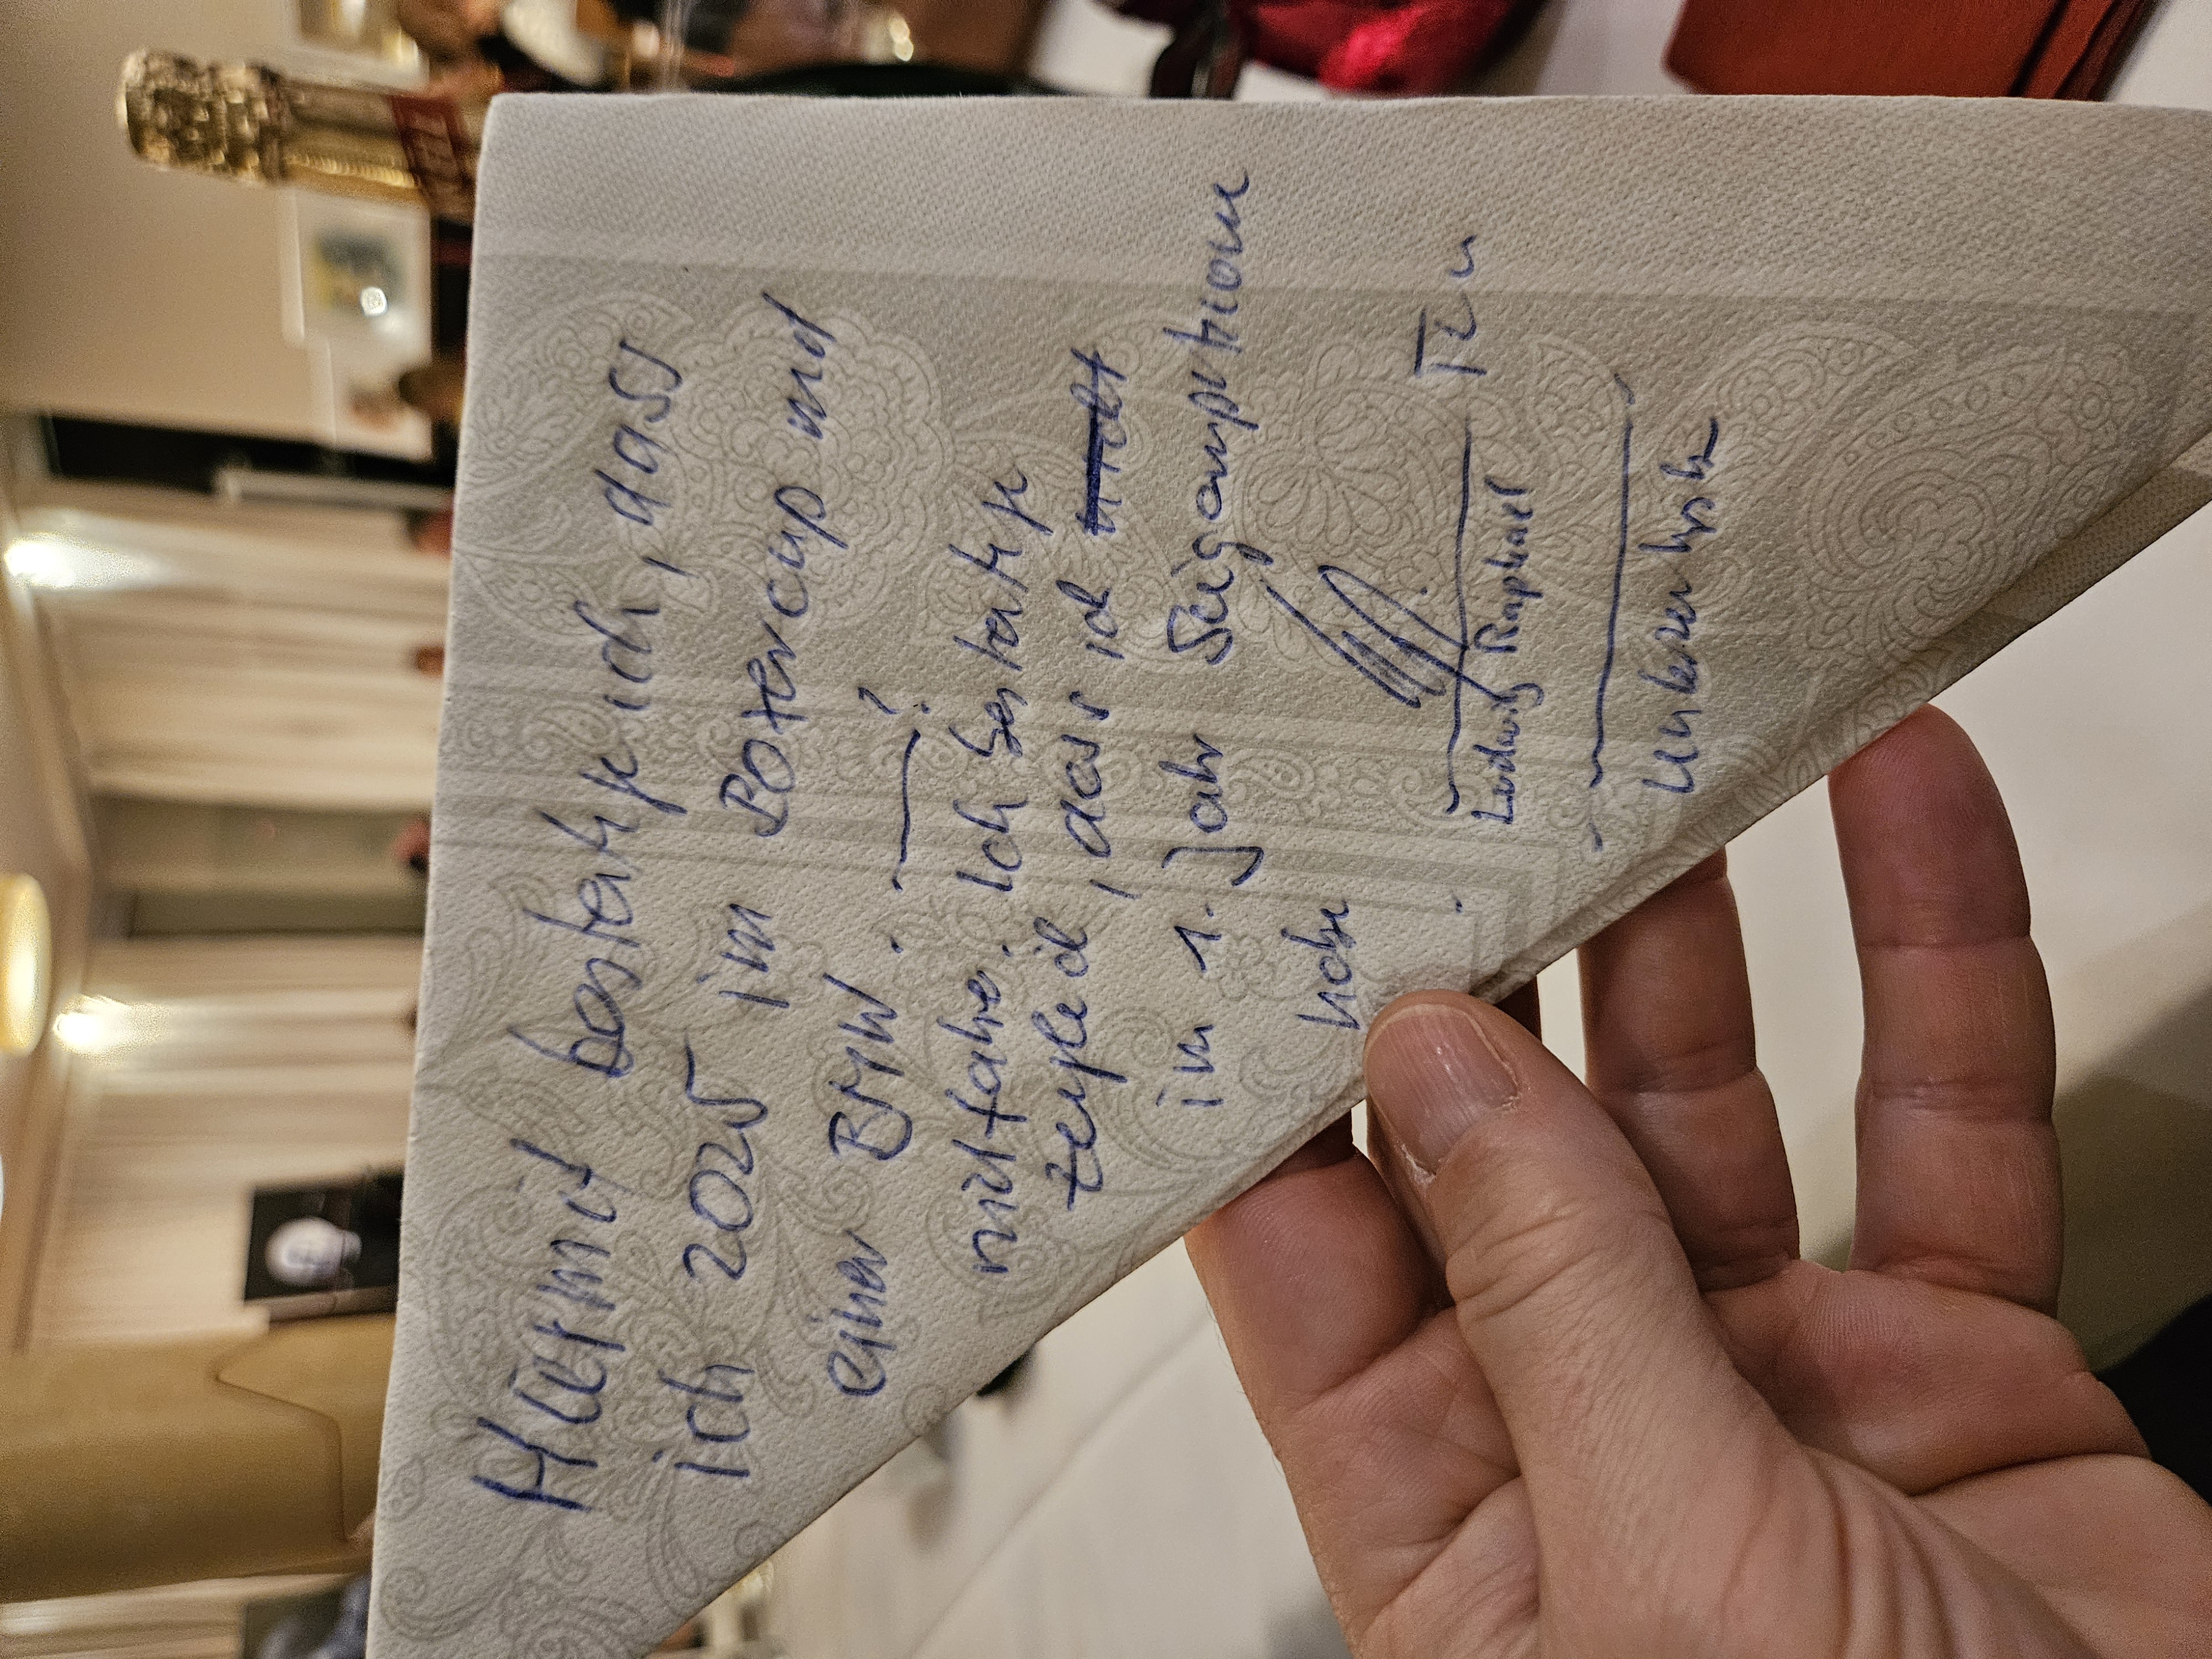 Hiermit bestertige ich, dass
ich 2025 im Botercup mit
einer BMW . —— ?
mitfahre. Ich bestertige
zeugleich, dass ich
im 1. Jahr Siegamputionen
habe
Ludwig Raphael
Unterschrift